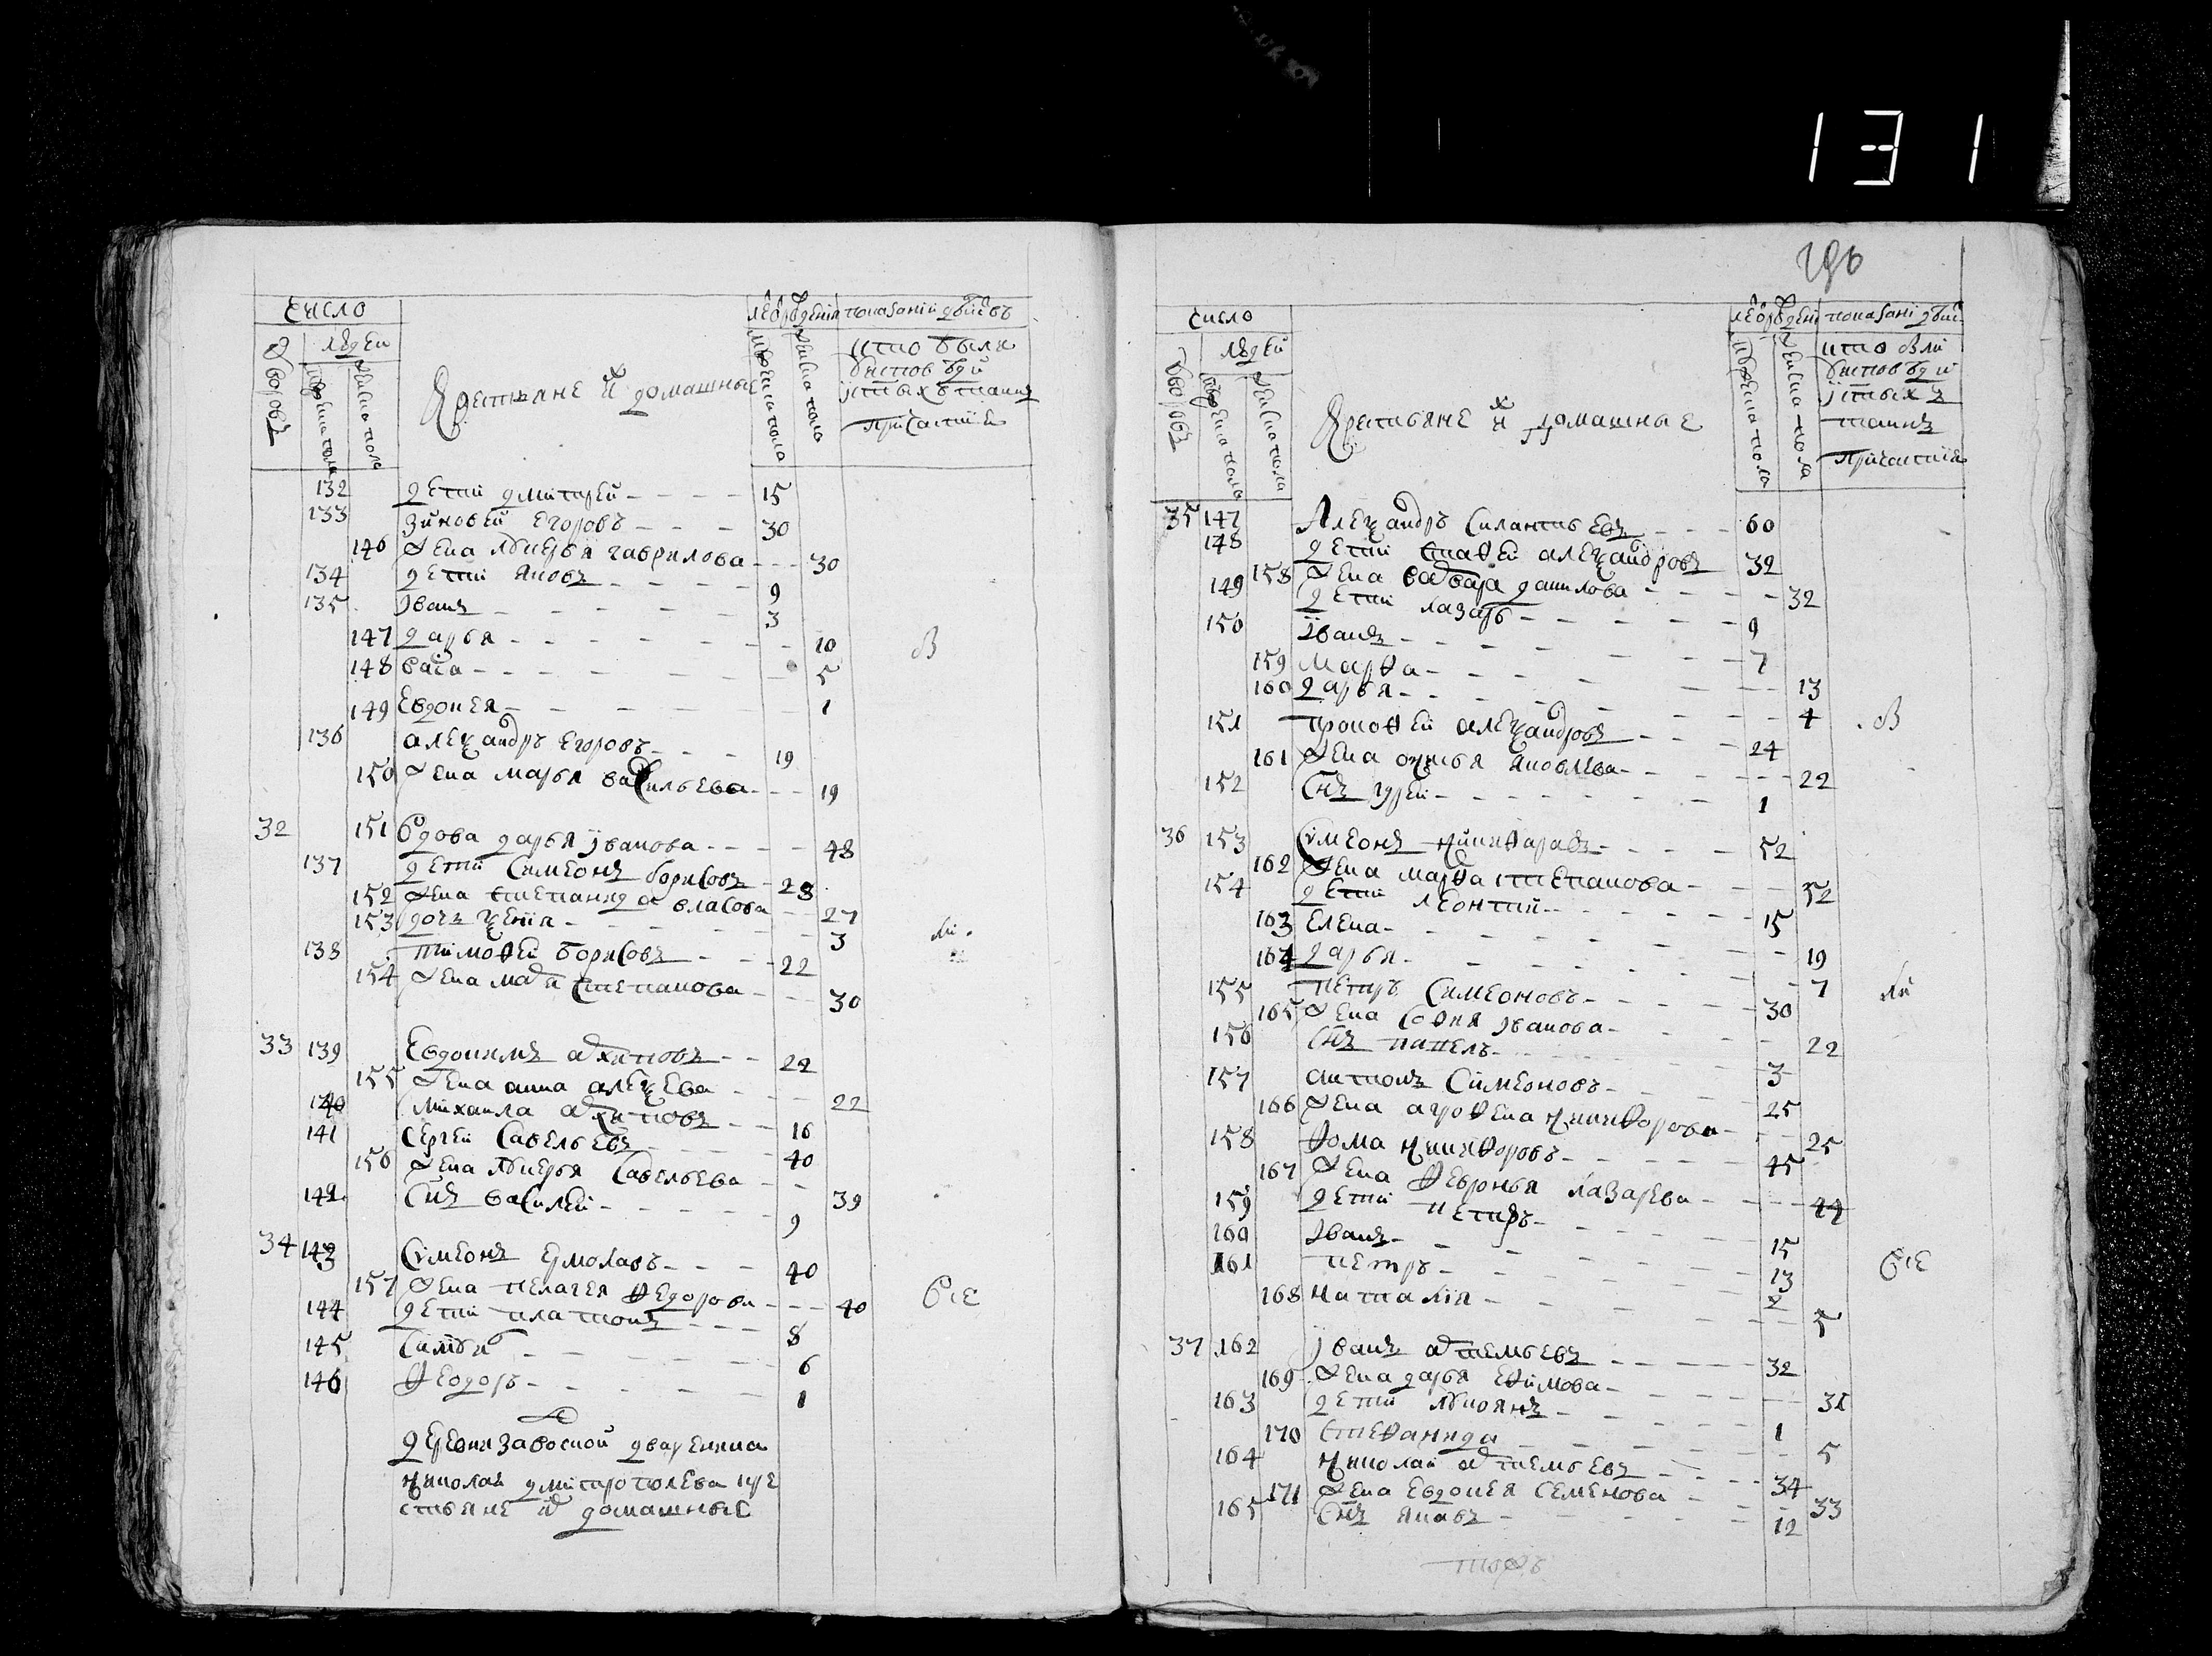 131
число
людей
дворовъ
мужеска пола
женска пола
Крестьяне ихъ домашные
лѣ рождения
мужеска пола
женска пола
показании действъ
кто были
уисповеди
истыхъ таинъ
причастия
132 дети дмитрей 15
133 зиновей егоровъ 30
146 жена лукерья гаврилова 30
134 дети яковъ 9
135 иванъ 3
147 дарья 10 В
148 васа 5
149 Евдокея 1
136 александръ егоровъ 19
150 жена марья васильева 19
32 151 вдова дарья иванова 48
137 дети Симеонъ борисовъ 28
152 жена степанида власова 27
153 дочь ксения 3
138 тимофей борисовъ 22
154 жена марья степанова 30
33 139 Евдокимъ архиповъ 22
155 жена анна алексеева 22
140 михаила архиповъ 16
141 сергей савельевъ 40
156 жена лукерья савельева 39
142 снъ василей 9
34 143 Симеонъ ермолаевъ 40
157 жена пелагея федорова 40
144 дети платонъ 8
145 6
146 феодоръ 1
деревня дваренина
николая дмитро кре
стьяне ихъ домашные
число
людей
дворовъ
мужеска пола
женска пола
Крестьяне ихъ домашные
лѣ рождени
мужеска пола
женска пола
показани дѣис
кто были
уисповеди
истыхъ
таинъ
причастия
35 147 Александръ Силантьевъ 60
148 дети александровъ 32
158 жена варвара данилова 32
149 дети лазарь 9
150 иванъ 7
159 марфа 13
160 дарья 4 В
151 прокофей александровъ 24
161 жена яковлева 22
152 снъ гурей 1
36 153 Симеонъ никифаравъ 52
162 жена марфа степанова 52
154 дети леонтий 15
163 Елена 19
164 дарья 7
155 петръ Симеоновъ 30
165 жена софия иванова 22
156 снъ 3
157 антонъ Симеоновъ 25
166 жена агрофена никифорова 25
158 фома никифоровъ 45
167 жена февронья лазарева 44
159 дети петръ 15
160 иванъ 13
161 петръ 2
168 наталия 5
37 162 иванъ артемьевъ 32
169 жена дарья ефимова 31
163 дети лукоянъ 1
170 стефанида 5
164 николай артемьевъ 34
171 жена Евдокея семенова 33
165 снъ яковъ 12